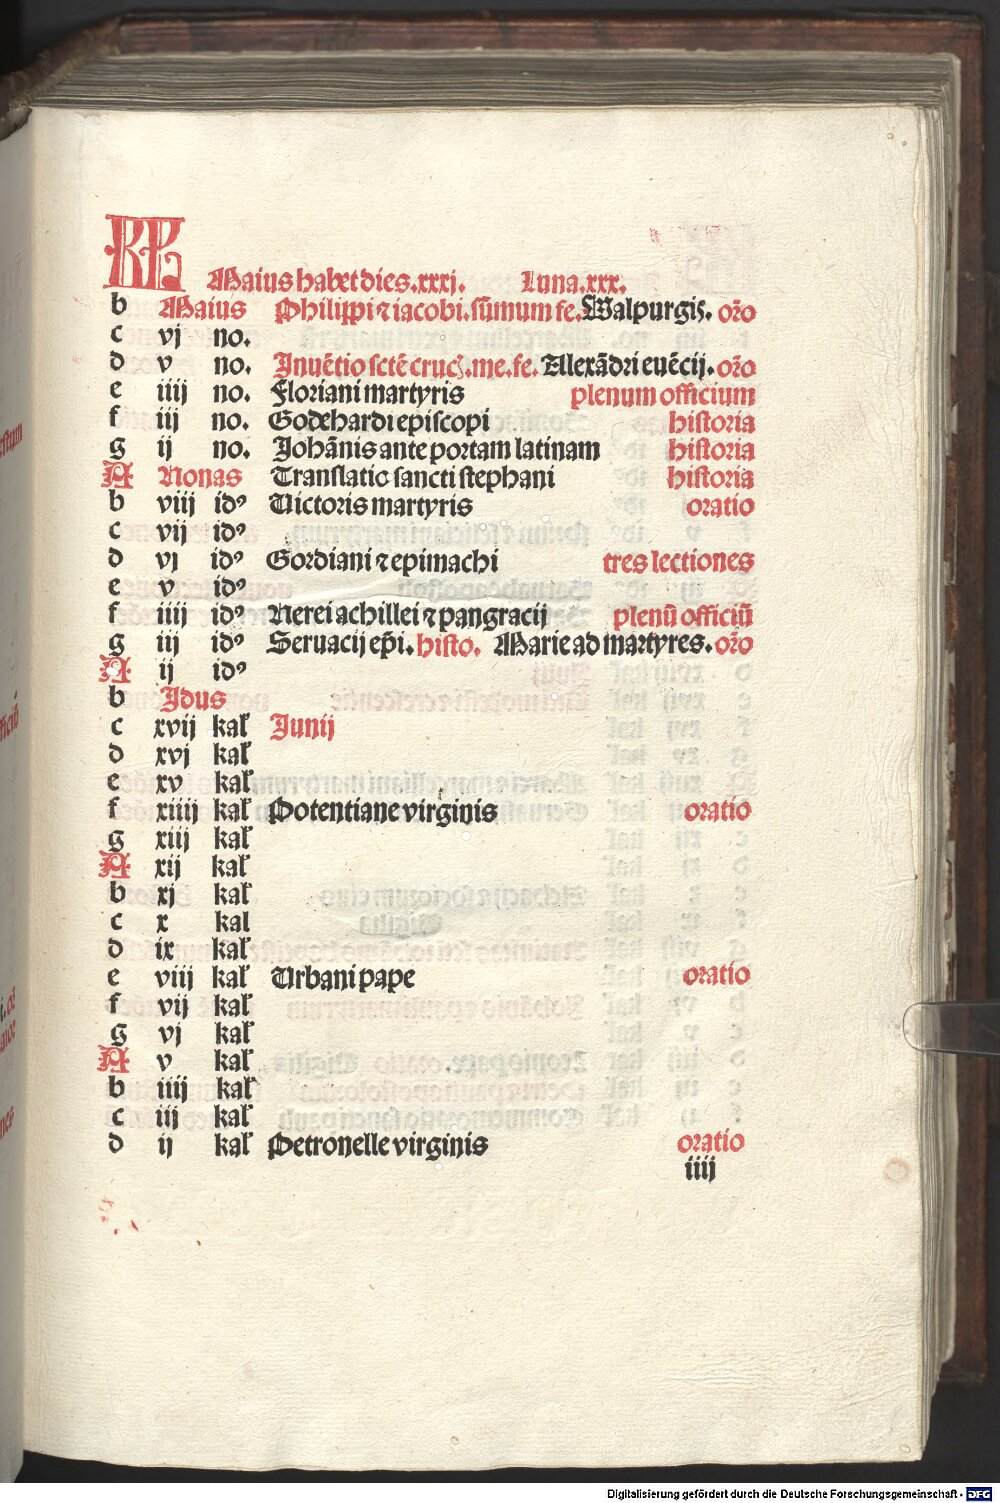 KL Maius habet dies .xxxj. Luna .xxx.
b Maius Philippi ⁊ iacobi. sūmum fe. Walpurgis. oro
c vj no.
d v no. Inuētio sctē cruc. me. fe. Allexādri euēcij. oro
e iiij no. Floriani martyris plenum officium
f iij no. Godehardi episcopi historia
g ij no. Johānis ante portam latinam historia
A Nonas Translatio sancti stephani historia
b viij idꝰ Uictoris martyris oratio
c vij idꝰ
d vj idꝰ Gordiani ⁊ epimachi tres lectiones
e v idꝰ
f iiij idꝰ Nerei achillei ⁊ pangracij plenū officiū
g iij idꝰ Seruacij ep̄i. histo. Marie ad martyres. oro
A ij idꝰ
b Idus
c xvij kal Junij
d xvj kal
e xv kal
f xiiij kal Potentiane virginis oratio
g xiij kal
A xij kal
b xj kal
c x kal
d ix kal
e viij kal Urbani pape oratio
f vij kal
g vj kal
A v kal
b iiij kal
c iij kal
d ij kal Petronelle virginis oratio
iiij
Digitalisierung gefördert durch die Deutsche Forschungsgemeinschaft - DFG